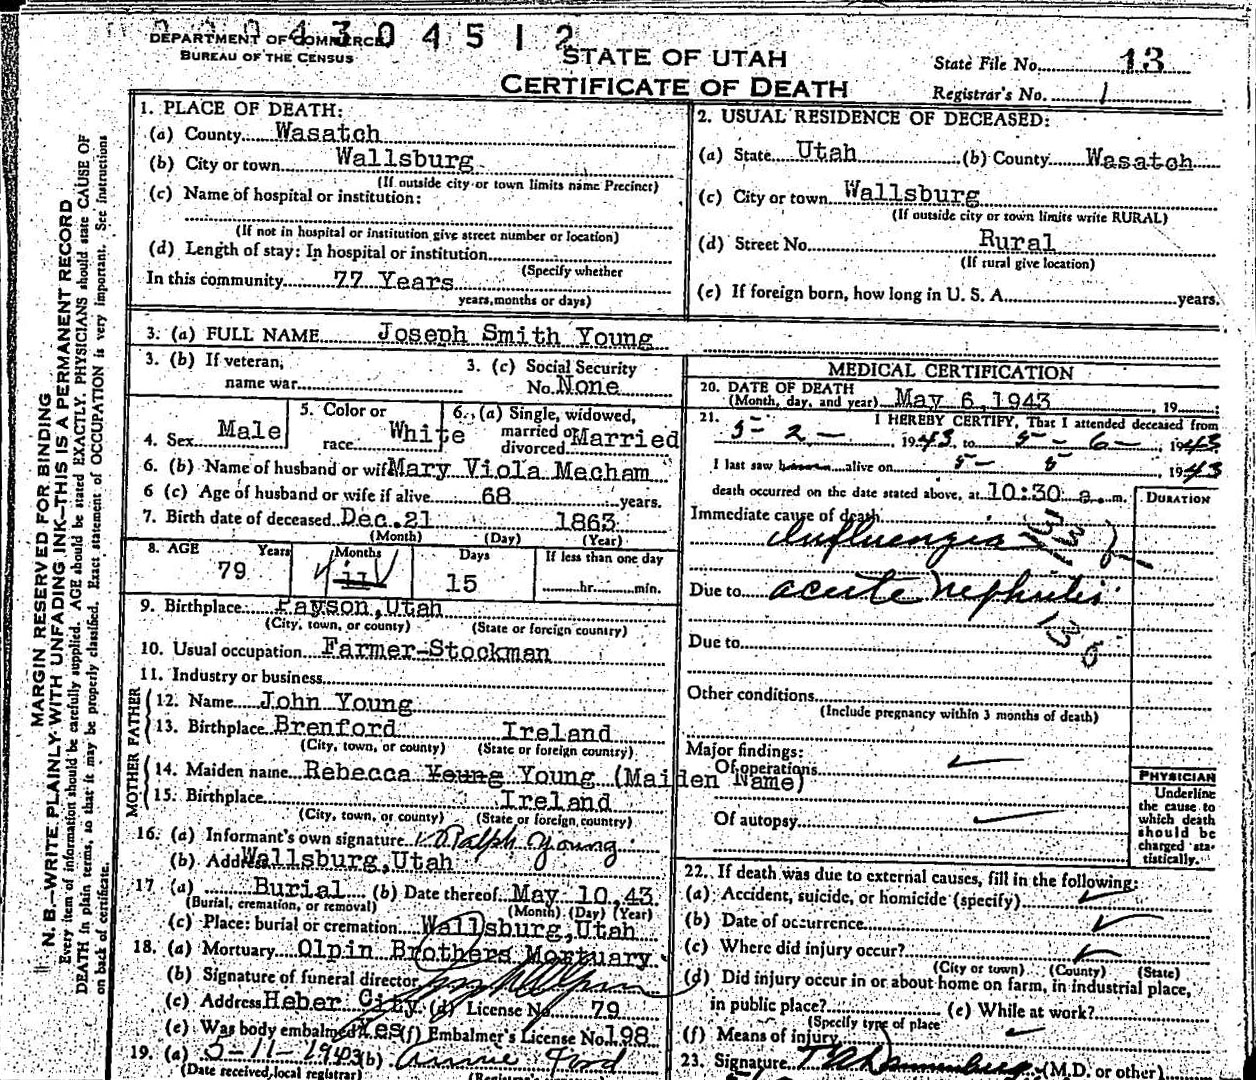 4 3 0 4 5 1 2
DEPARTMENT OF COMMERCE
BUREAU OF THE CENSUS
STATE OF UTAH
CERTIFICATE OF DEATH
State File No. 13
Registrar's No. 1
MARGIN RESERVED FOR BINDING
N. B.—WRITE PLAINLY WITH UNFADING INK—THIS IS A PERMANENT RECORD
Every item of information should be carefully supplied. AGE should be stated EXACTLY. PHYSICIANS should state CAUSE OF
DEATH in plain terms, so that it may be properly classified. Exact statement of OCCUPATION is very important. See instructions
on back of certificate.
1. PLACE OF DEATH:
(a) County Wasatch
(b) City or town Wallsburg
(If outside city or town limits name Precinct)
(c) Name of hospital or institution:
(If not in hospital or institution give street number or location)
(d) Length of stay: In hospital or institution
(Specify whether
In this community 77 Years
years, months or days)
2. USUAL RESIDENCE OF DECEASED:
(a) State Utah (b) County Wasatch
(c) City or town Wallsburg
(If outside city or town limits write RURAL)
(d) Street No. Rural
(If rural give location)
(e) If foreign born, how long in U. S. A. years.
3. (a) FULL NAME Joseph Smith Young
3. (b) If veteran, name war
3. (c) Social Security No. None
4. Sex Male
5. Color or race White
6. (a) Single, widowed, married or divorced Married
6. (b) Name of husband or wife Mary Viola Mecham
6 (c) Age of husband or wife if alive 68 years.
7. Birth date of deceased Dec. 21 1863
(Month) (Day) (Year)
8. AGE Years Months Days If less than one day
79 4 11 15 hr. min.
9. Birthplace Payson, Utah
(City, town, or county) (State or foreign country)
10. Usual occupation Farmer-Stockman
11. Industry or business
FATHER
12. Name John Young
13. Birthplace Brenford Ireland
(City, town, or county) (State or foreign country)
MOTHER
14. Maiden name Rebecca Young Young (Maiden Name)
15. Birthplace Ireland
(City, town, or county) (State or foreign, country)
16. (a) Informant's own signature Ralph Young
(b) Address Wallsburg, Utah
17 (a) Burial (b) Date thereof May 10, 43
(Burial, cremation, or removal) (Month) (Day) (Year)
(c) Place: burial or cremation Wallsburg, Utah
18. (a) Mortuary Olpin Brothers Mortuary
(b) Signature of funeral director
(c) Address Heber City (d) License No. 79
(e) Was body embalmed Yes (f) Embalmer's License No. 198
19. (a) 5-11-1943 (b) Annie Ford
(Date received local registrar)
MEDICAL CERTIFICATION
20. DATE OF DEATH
(Month, day, and year) May 6, 1943, 19
21. I HEREBY CERTIFY, That I attended deceased from
5-2-, 1943, to 5-6-, 1943
I last saw him alive on 5- 5 1943
death occurred on the date stated above, at 10:30 a. m.
DURATION
Immediate cause of death
Influenzia
Due to acute nephritis
130
Due to
Other conditions
(Include pregnancy within 3 months of death)
Major findings:
Of operations
Of autopsy
PHYSICIAN
Underline
the cause to
which death
should be
charged sta-
tistically.
22. If death was due to external causes, fill in the following:
(a) Accident, suicide, or homicide (specify)
(b) Date of occurrence
(c) Where did injury occur?
(City or town) (County) (State)
(d) Did injury occur in or about home on farm, in industrial place,
in public place? (e) While at work?
(Specify type of place
(f) Means of injury
23. Signature (M.D. or other)